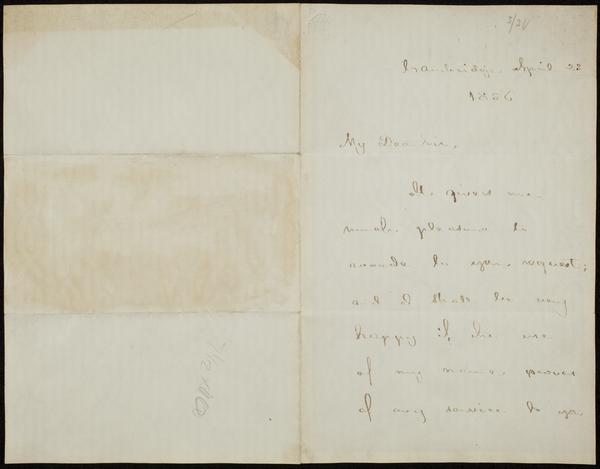 Cambridge April 22
1856
My Dear Sir,
It gives me
much pleasure to
accede to your request;
and I shall be very
happy if the use
of my name proves
of any service to you